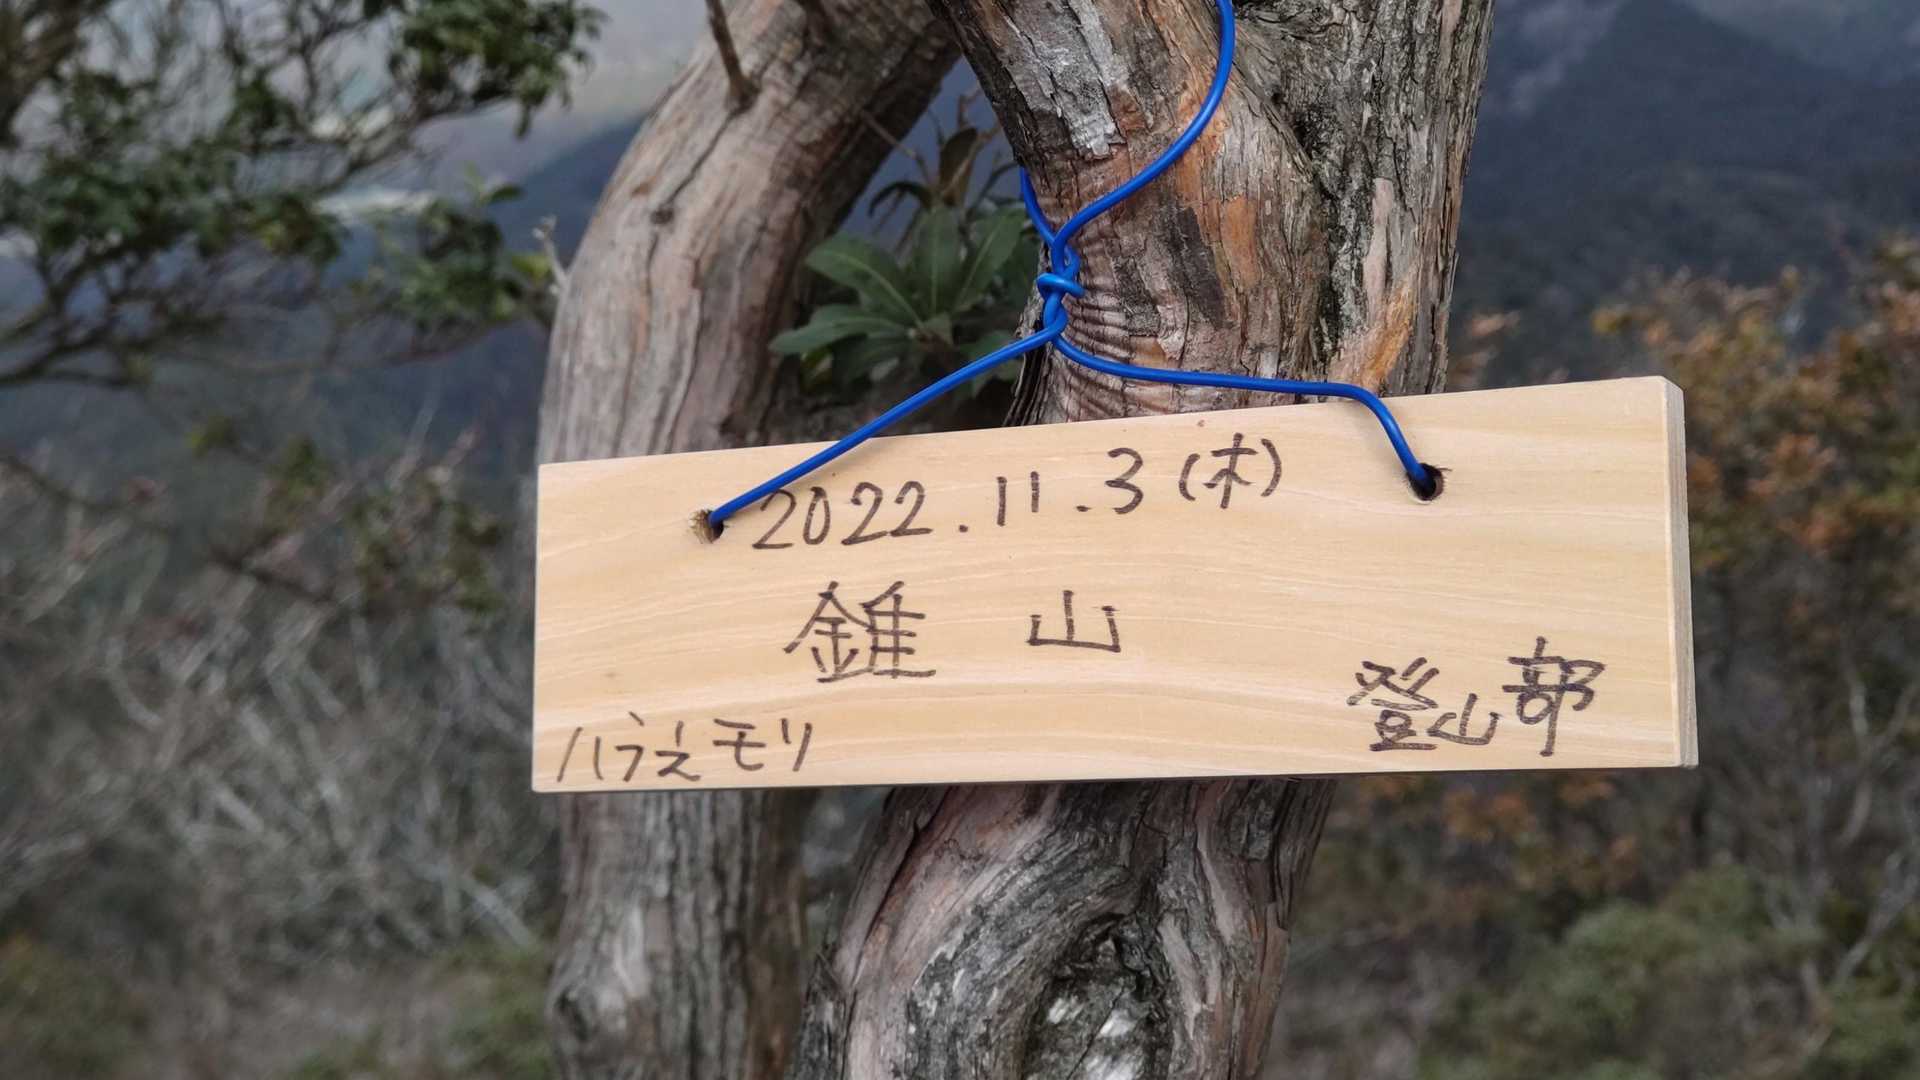 2022.11.3(木)
錐山
ハラえモリ 登山部